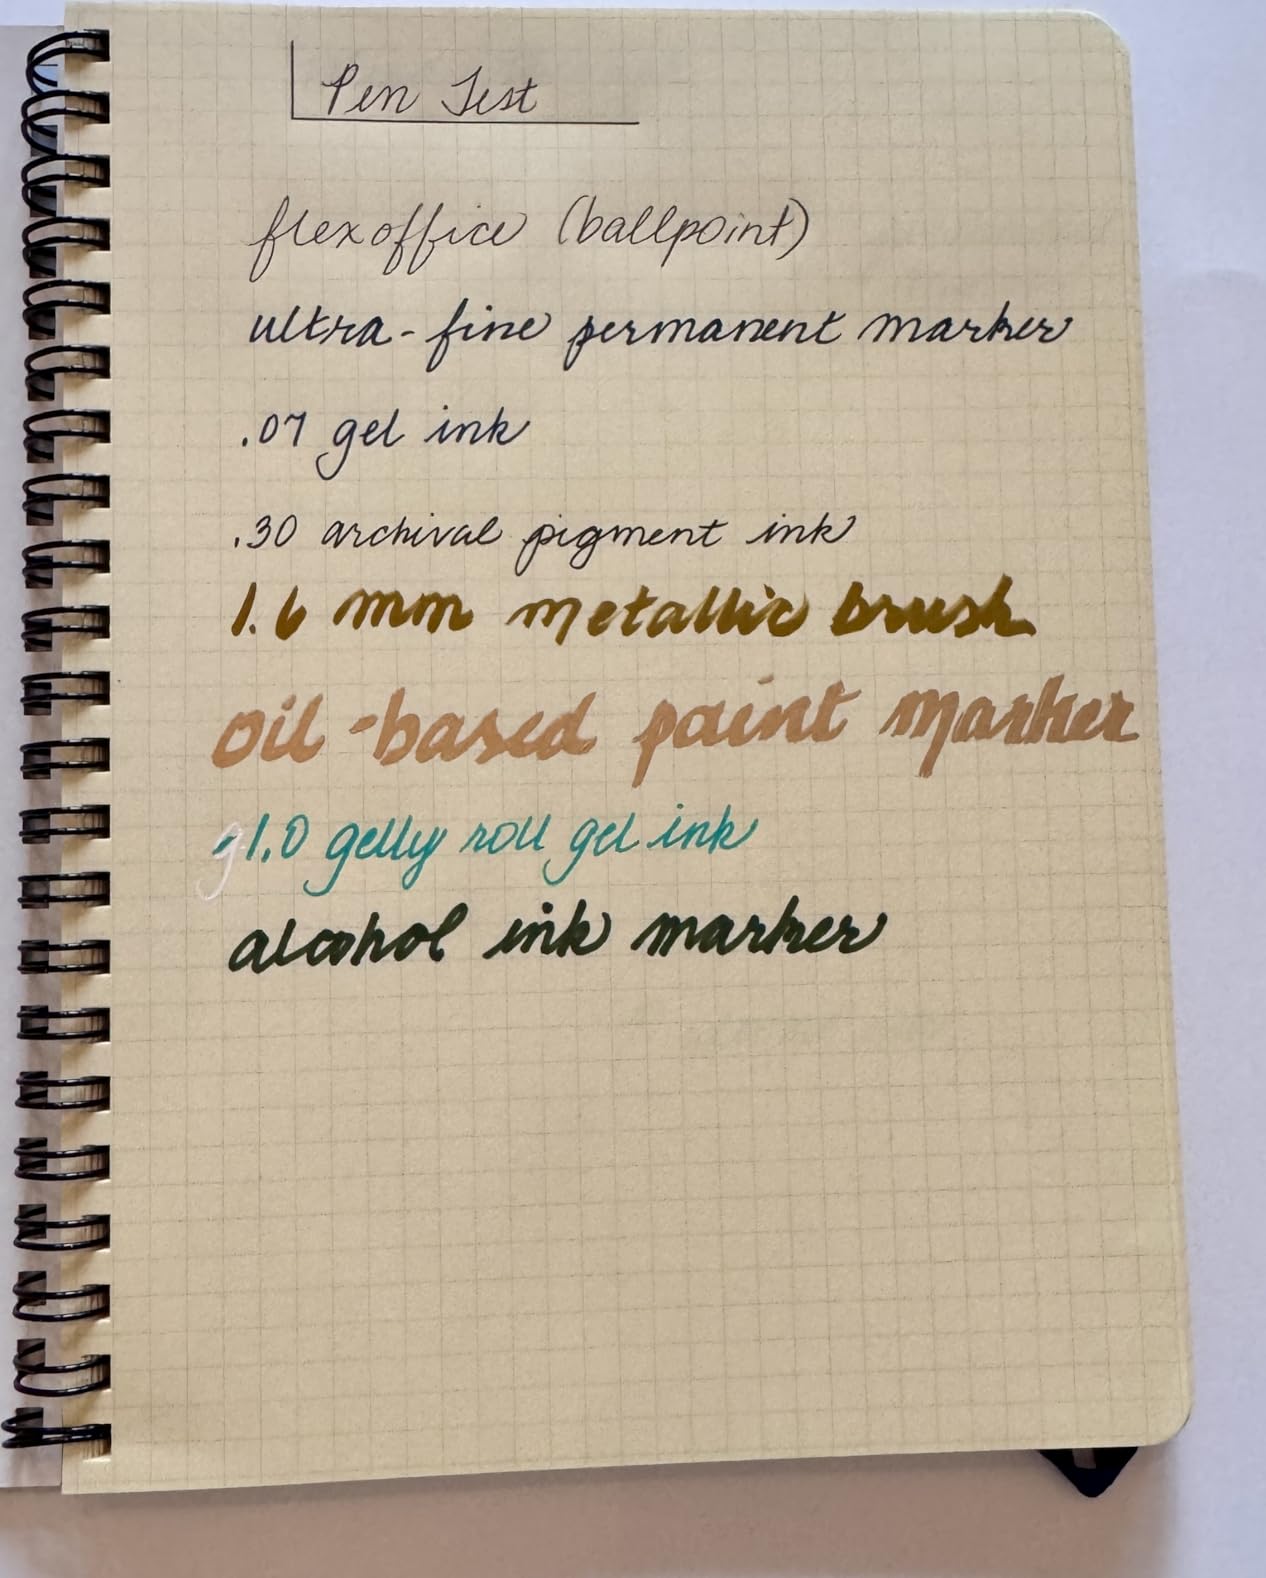 Pen Test
flexoffice (ballpoint)
ultra-fine permanent marker
.07 gel ink
.30 archival pigment ink
1.6 mm metallic brush
oil-based paint marker
g1.0 gelly roll gel ink
alcohol ink marker